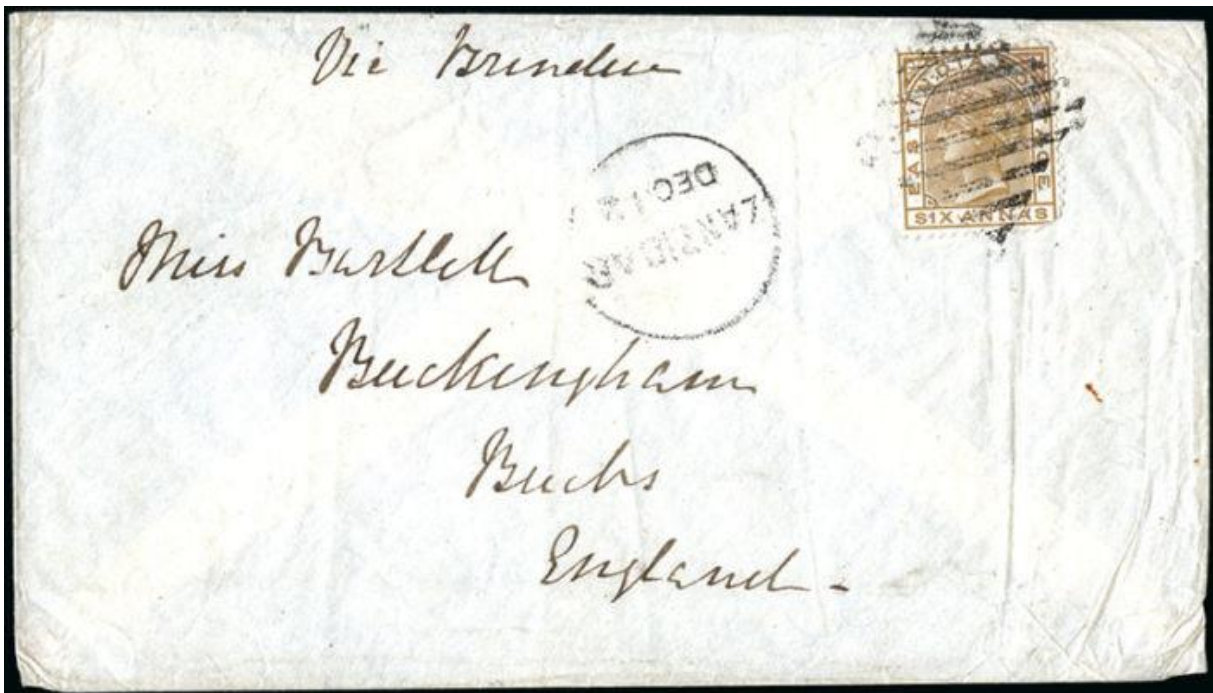 Via Brindisi
EAST INDIA POSTAGE
SIX ANNAS
ZANZIBAR
DEC 12
Miss Bartlett
Buckingham
Bucks
England -